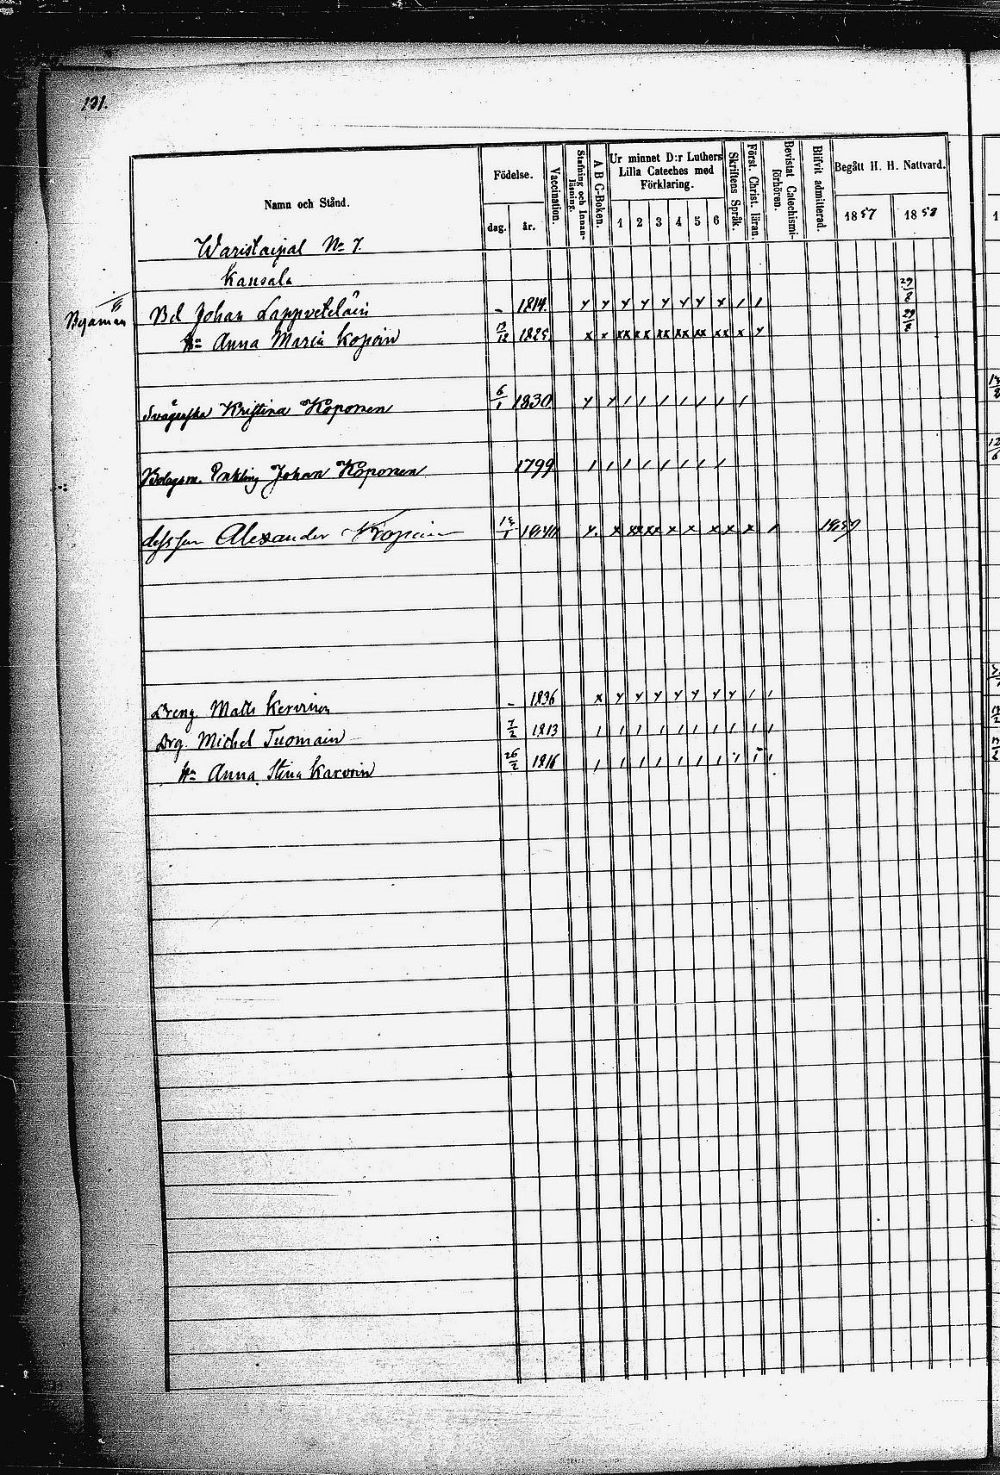 131.
Namn och Stånd.
Födelse.
dag. år.
Vaccination.
Stafning och Innan-läsning.
A B C-Boken.
Ur minnet D:r Luthers Lilla Cateches med Förklaring.
1 2 3 4 5 6
Skriftens Språk.
Först. Christ. läran.
Bevistat Catechismi-förhören.
Blifvit admitterad.
Begått H. H. Nattvard.
1857 1858
Waristaipal No 7.
Kansala
Bol Johan Lappveteläin - 1814. 29/8
Hu Anna Maria Kopoin 13/12 1825 29/8
Svägerska Kristina Koponen 6/1 1830
Bolagsm. Enkling Johan Koponen 1799
dess son Alexander Kopoin 1857
Dreng Matts Kervinen - 1836
Drg. Michel Tuomain 7/2 1813
Hu Anna Stina Karvoin 26/2 1816